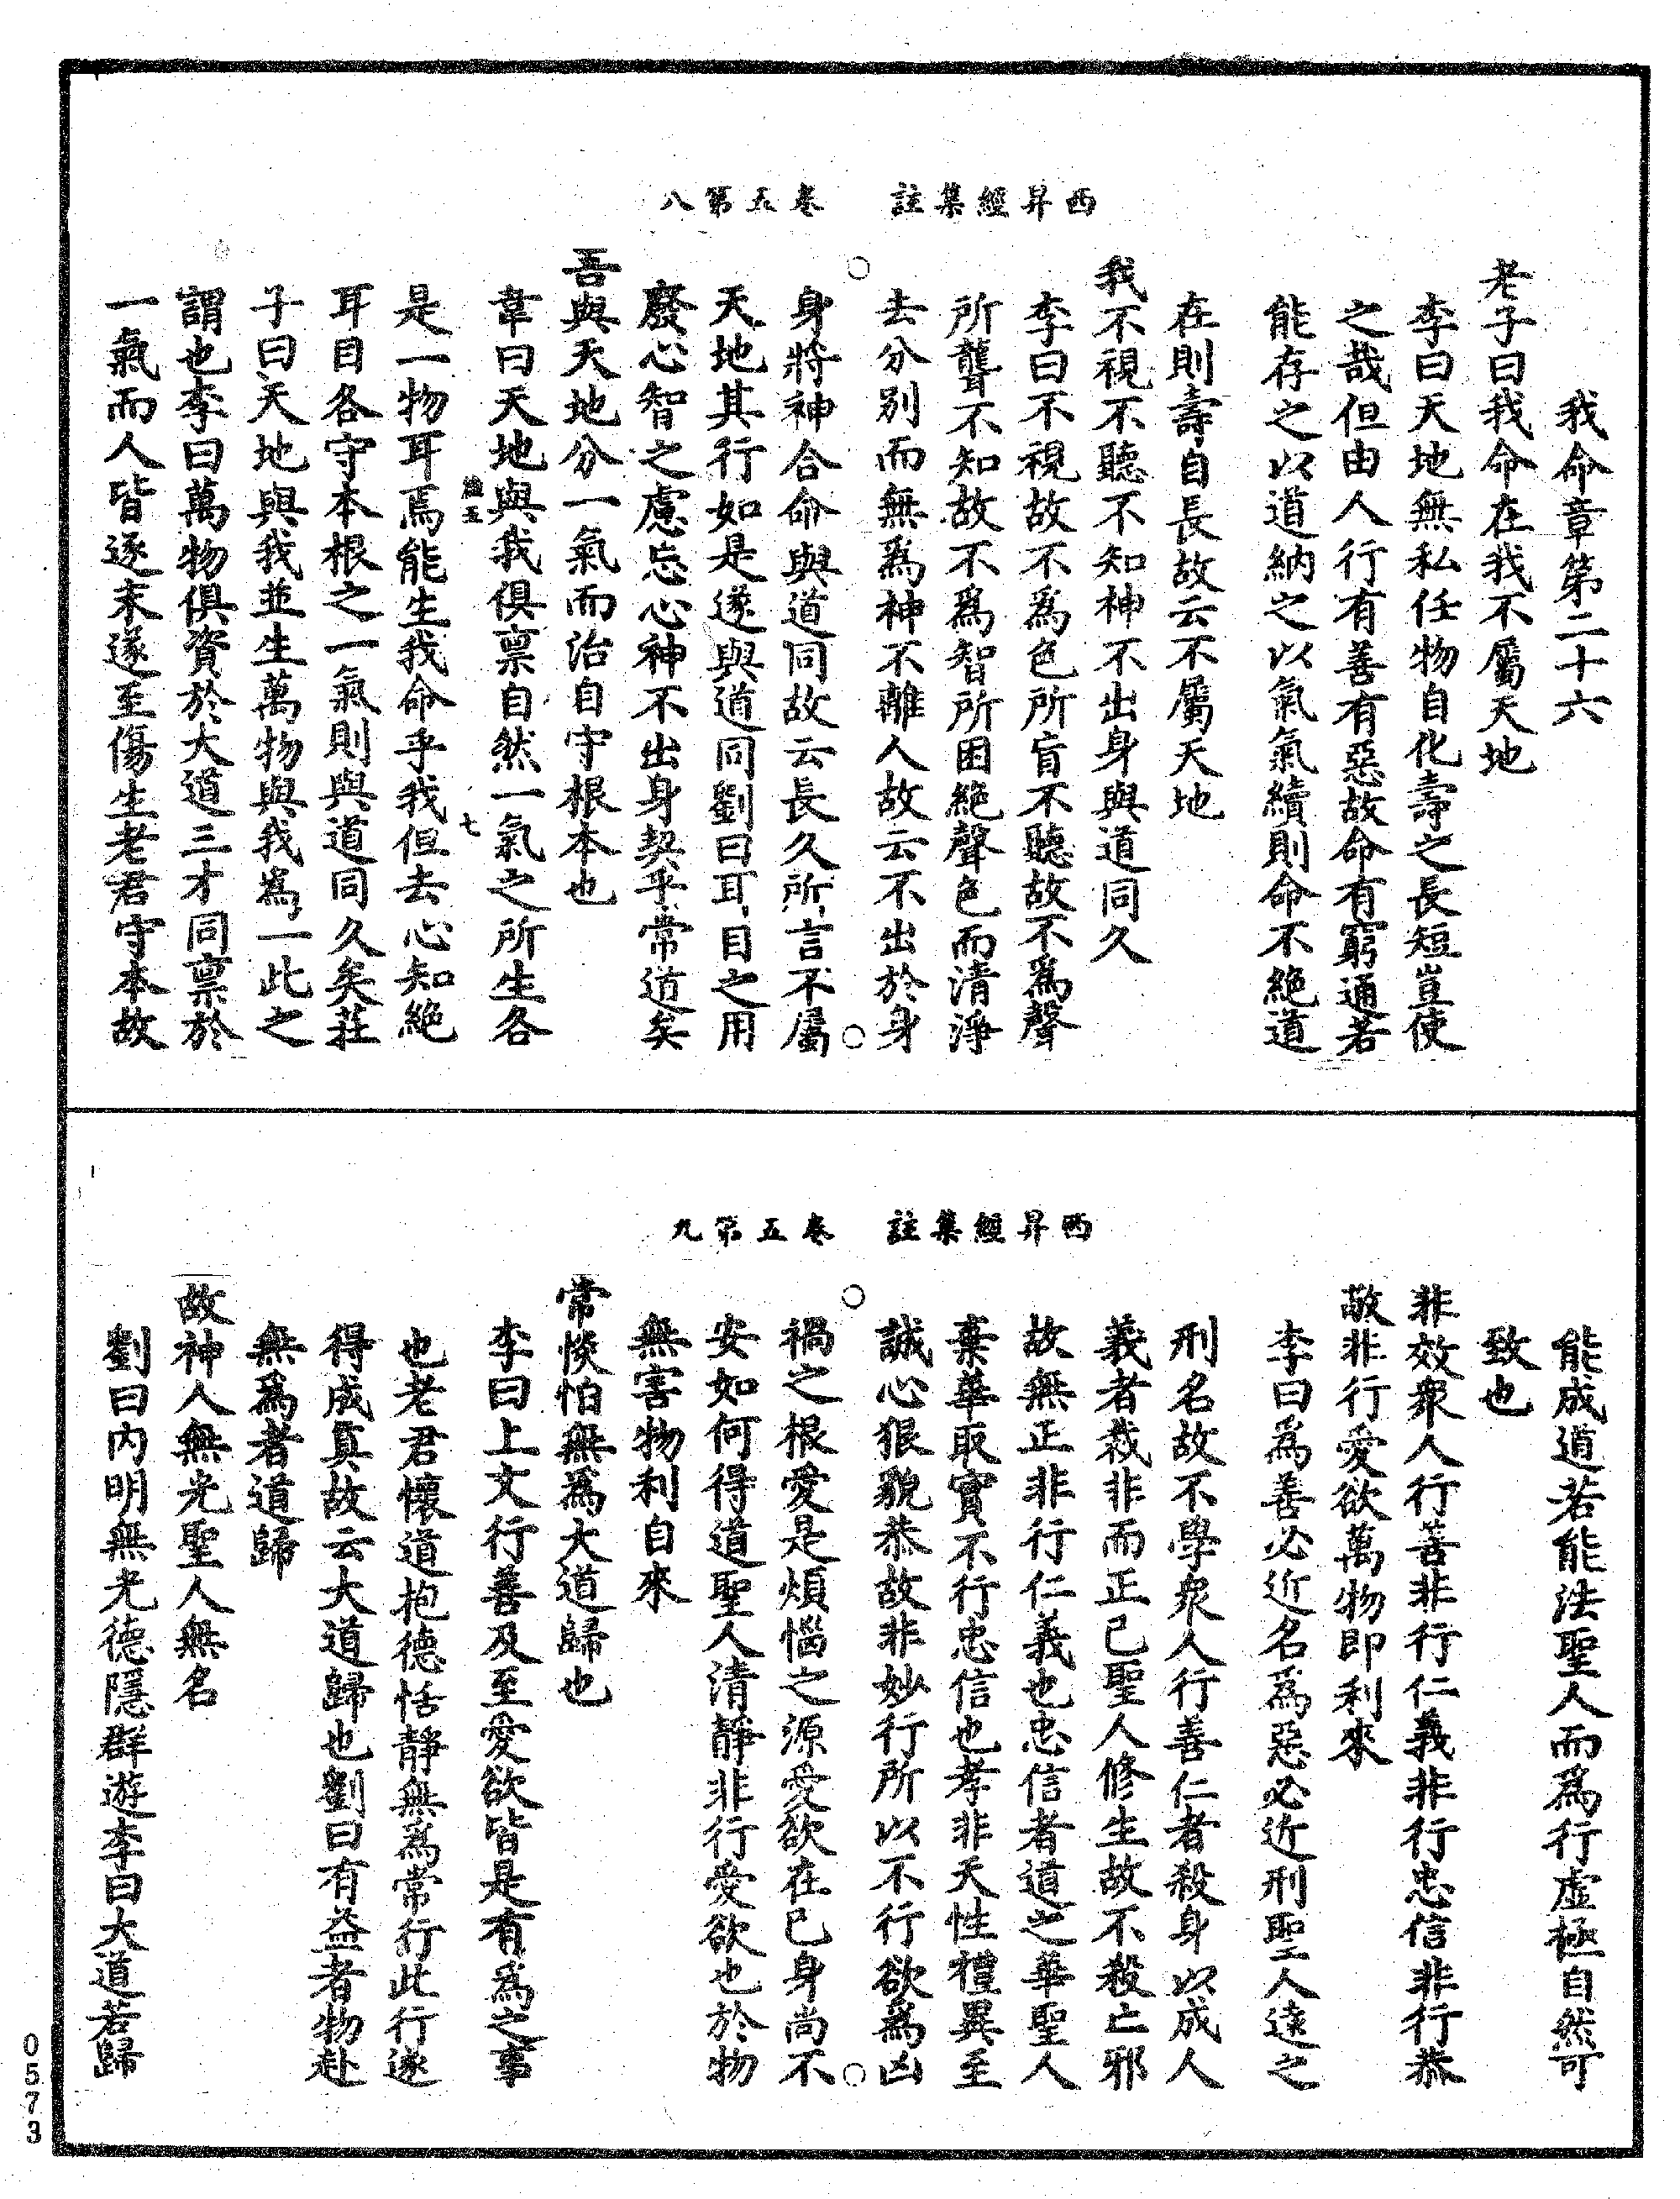 西昇經集註　卷五第八
我命章第二十六
老子曰我命在我不屬天地
李曰天地無私任物自化壽之長短豈使
之哉但由人行有善有惡故命有窮通若
能存之以道納之以氣氣續則命不絶道
在則壽自長故云不屬天地
我不視不聽不知神不出身與道同久
李曰不視故不爲色所盲不聽故不爲聲
所聾不知故不爲智所困絶聲色而清淨
去分別而無爲神不離人故云不出於身
身將神合命與道同故云長久所言不屬
天地其行如是遂與道同劉曰耳目之用
廢心智之慮忘心神不出身契乎常道矣
吾與天地分一氣而治自守根本也
韋曰天地與我俱稟自然一氣之所生各
是一物耳焉能生我命乎我但去心知絶
耳目各守本根之一氣則與道同久矣莊
子曰天地與我並生萬物與我爲一此之
謂也李曰萬物俱資於大道三才同稟於
一氣而人皆逐末遂至傷生老君守本故
七
西昇經集註　卷五第九
能成道若能法聖人而爲行虛極自然可
致也
非效衆人行善非行仁義非行忠信非行恭
敬非行愛欲萬物即利來
李曰爲善必近名爲惡必近刑聖人遠之
刑名故不學衆人行善仁者殺身以成人
義者裁非而正己聖人修生故不殺亡邪
故無正非行仁義也忠信者道之華聖人
棄華取實不行忠信也孝非天性禮異至
誠心狠貌恭故非妙行所以不行欲爲凶
禍之根愛是煩惱之源愛欲在己身尚不
安如何得道聖人清靜非行愛欲也於物
無害物利自來
常惔怕無爲大道歸也
李曰上文行善及至愛欲皆是有爲之事
也老君懷道抱德恬靜無爲常行此行遂
得成真故云大道歸也劉曰有益者物赴
無爲者道歸
故神人無光聖人無名
劉曰内明無光德隱群遊李曰大道若歸
0573